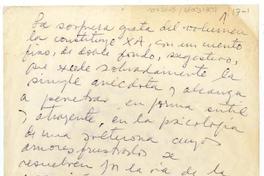 1
La sorpresa grata del volumen
la constituye XA, con un cuento
fino, de doble fondo, sugestivo,
que excede sobradamente la
simple anécdota y alcanza
a penetrar en forma sútil
y atrayente, en la psicología
de una solterona cuyos
amores frustrados se
resuelven en la vía de la